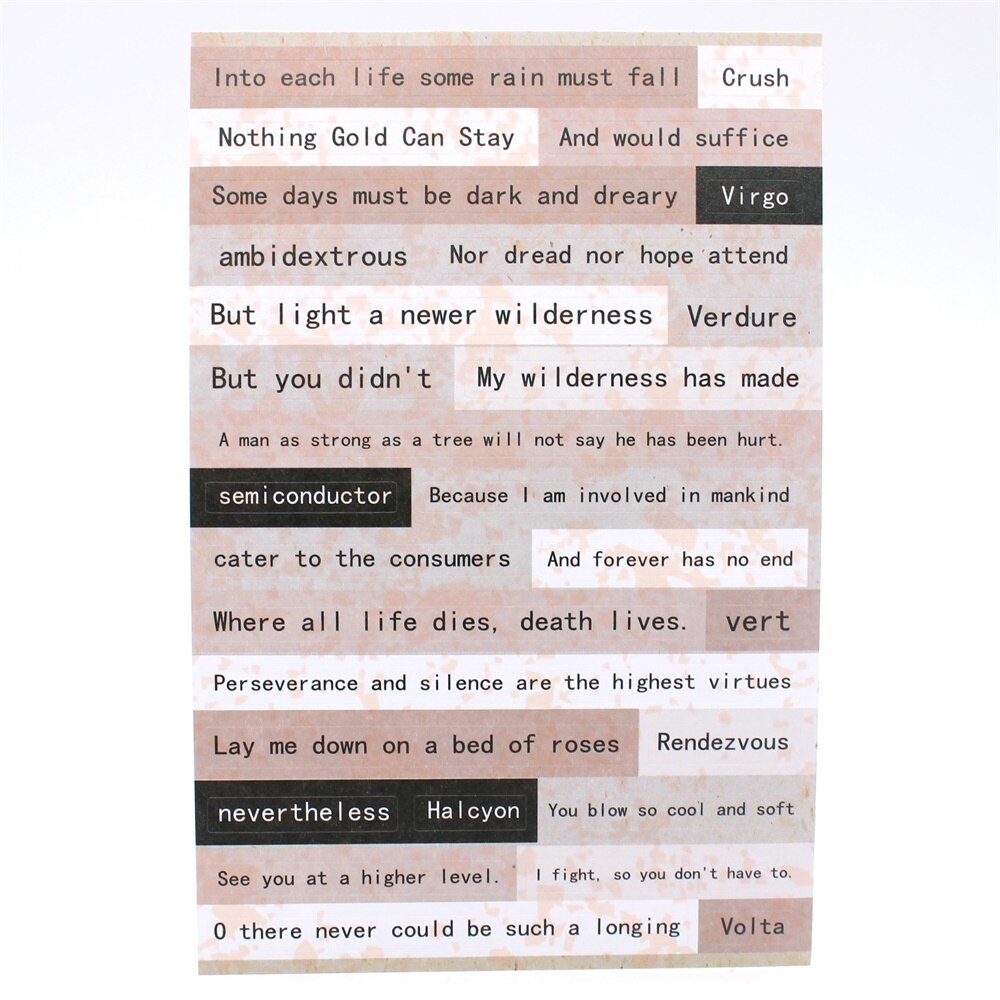 Into each life some rain must fall Crush
Nothing Gold Can Stay And would suffice
Some days must be dark and dreary Virgo
ambidextrous Nor dread nor hope attend
But light a newer wilderness Verdure
But you didn't My wilderness has made
A man as strong as a tree will not say he has been hurt.
semiconductor Because I am involved in mankind
cater to the consumers And forever has no end
Where all life dies, death lives. vert
Perseverance and silence are the highest virtues
Lay me down on a bed of roses Rendezvous
nevertheless Halcyon You blow so cool and soft
See you at a higher level. I fight, so you don't have to.
O there never could be such a longing Volta